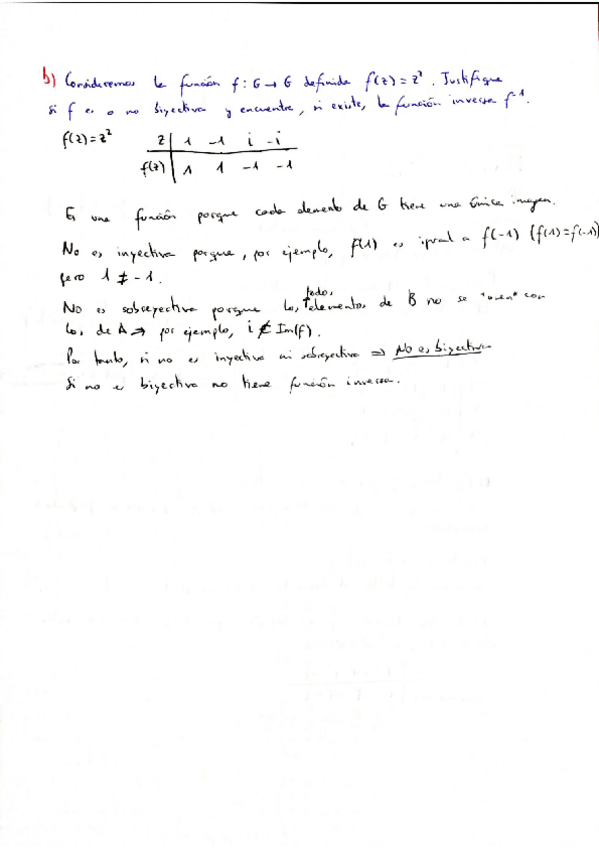 b) Consideremos la función f: G → G definida f(z) = z². Justifique
si f es o no biyectiva y encuentre, si existe, la función inversa f⁻¹.
f(z) = z²
z | 1 -1 i -i
f(z) | 1 1 -1 -1
Es una función porque cada elemento de G tiene una única imagen.
No es inyectiva porque, por ejemplo, f(1) es igual a f(-1) (f(1) = f(-1))
pero 1 ≠ -1.
No es sobreyectiva porque los todos elementos de B no se "unen" con
los de A → por ejemplo, i ∉ Im(f).
Por tanto, si no es inyectiva ni sobreyectiva ⇒ No es biyectiva
Si no es biyectiva no tiene función inversa.